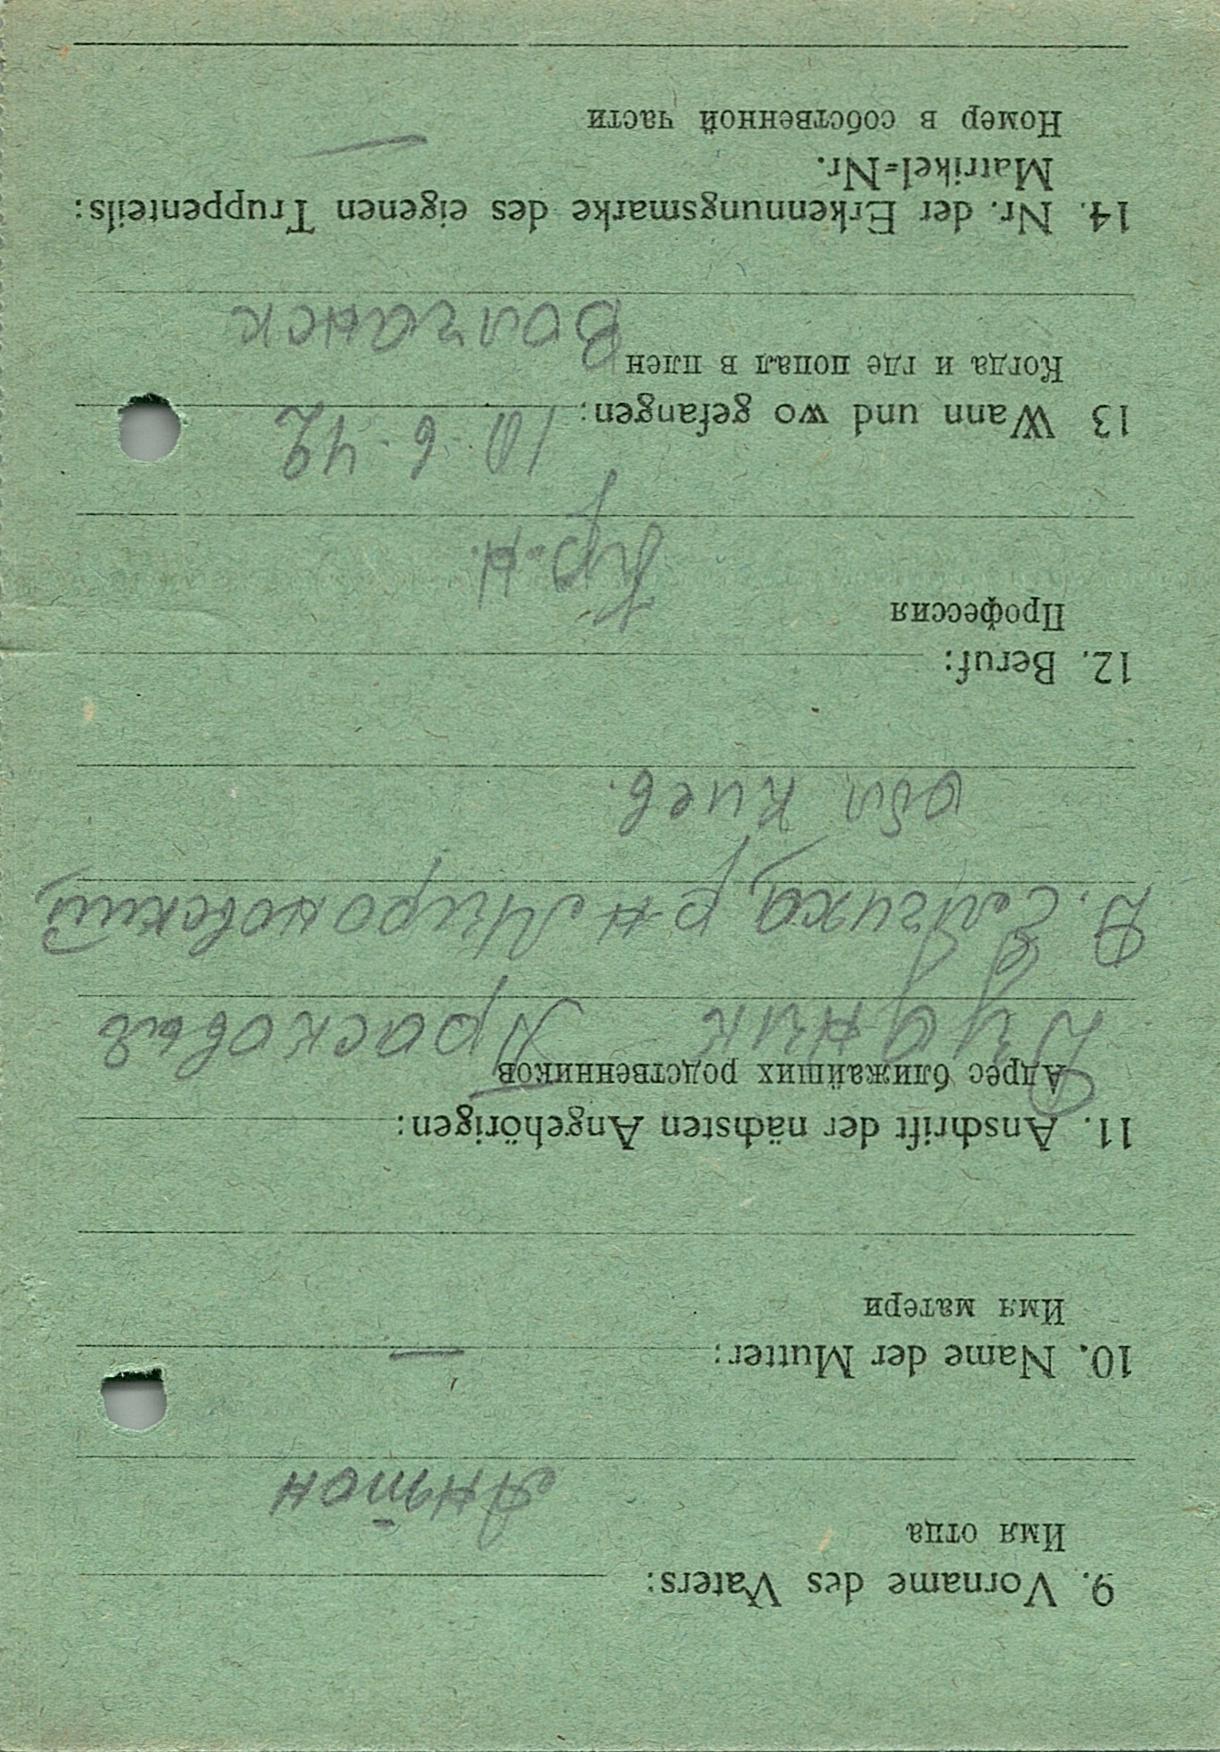 9. Vorname des Vaters:
Имя отца
Антон
10. Name der Mutter: —
Имя матери
11. Anschrift der nächsten Angehörigen:
Адрес ближайших родственников
Прасковья
Д. Емчиха, р-н Мироновский
обл Киев.
12. Beruf:
Профессия
Кр-н.
13 Wann und wo gefangen: 10-6-42
Когда и где попал в плен
Волчанск
14. Nr. der Erkennungsmarke des eigenen Truppenteils:
Matrikel-Nr.
Номер в собственной части —